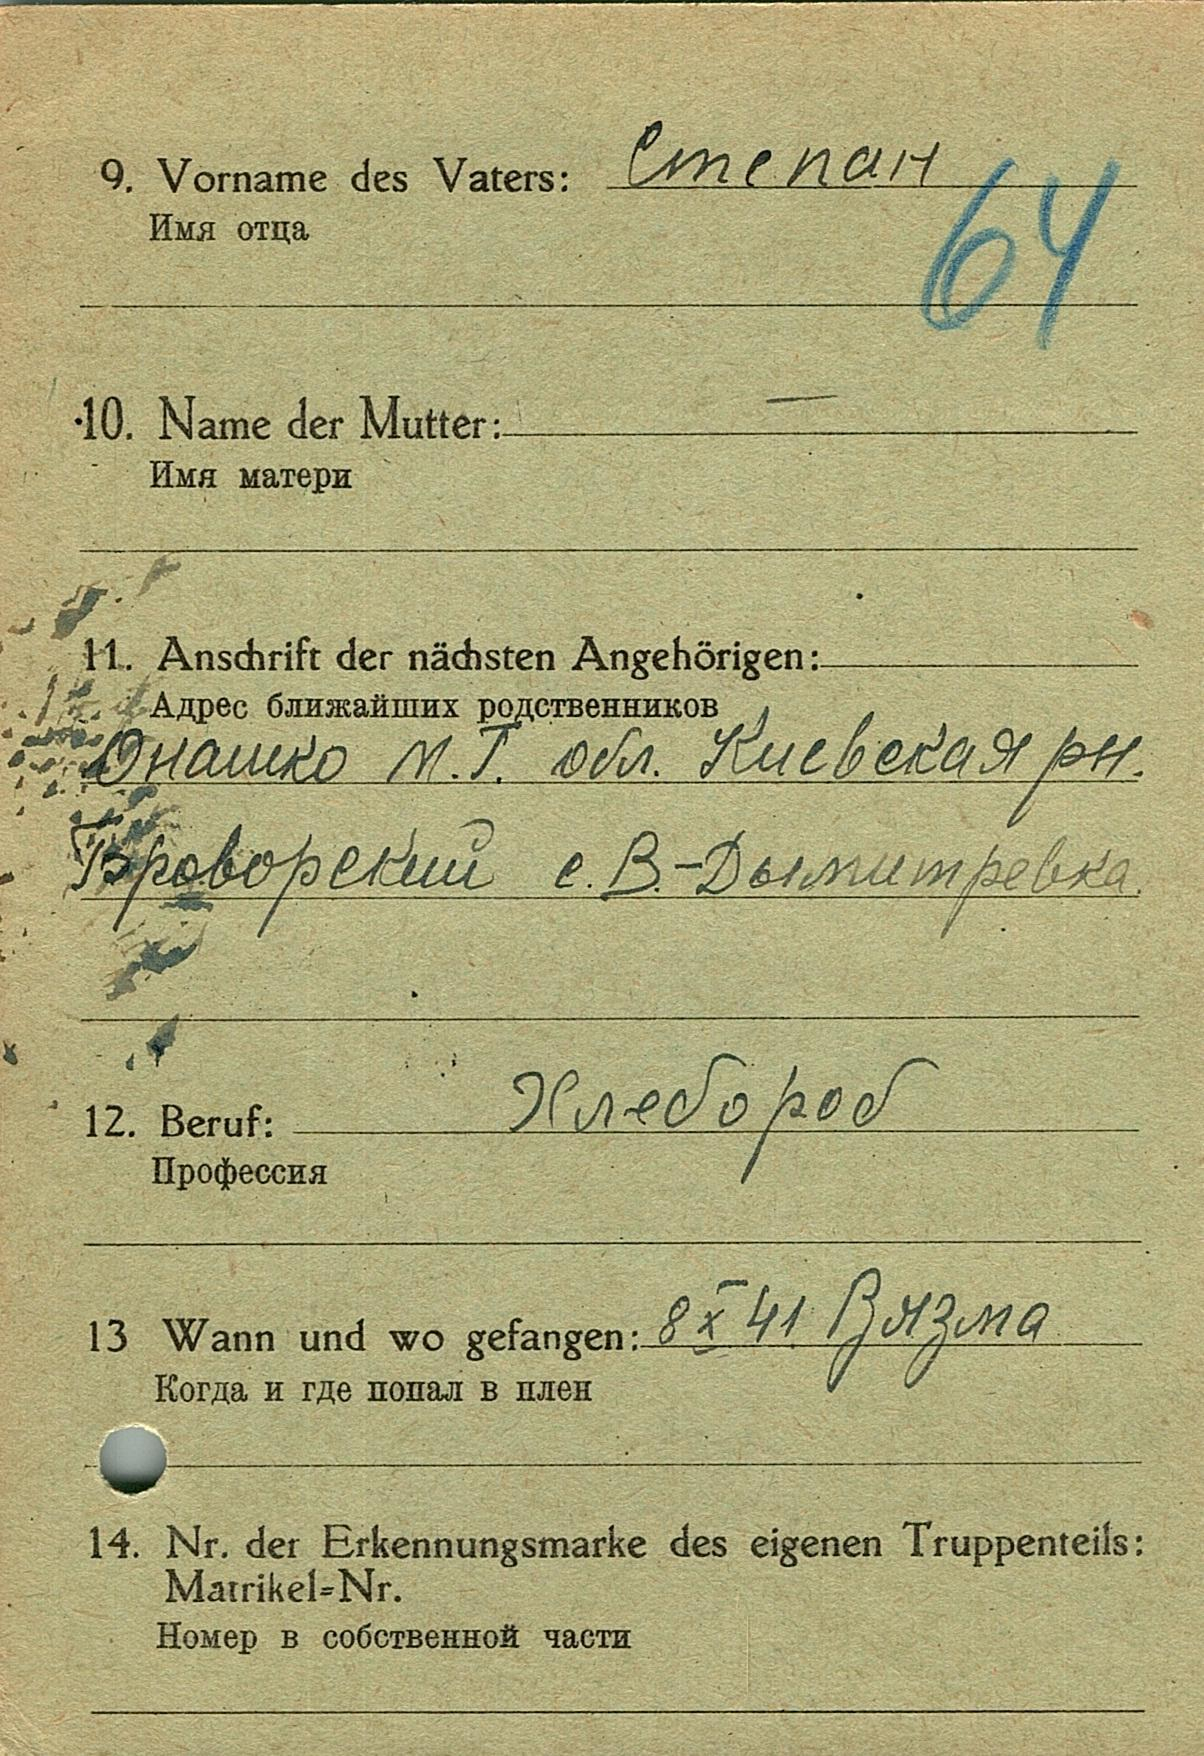 9. Vorname des Vaters: Степан
Имя отца
64
10. Name der Mutter: —
Имя матери
11. Anschrift der nächsten Angehörigen:
Адрес ближайших родственников
Онашко М.Г. обл. Киевская рн.
Броворский с. В.-Дымитревка.
12. Beruf: Хлебороб
Профессия
13 Wann und wo gefangen: 8 X 41 Вязма
Когда и где попал в плен
14. Nr. der Erkennungsmarke des eigenen Truppenteils:
Matrikel=Nr.
Номер в собственной части